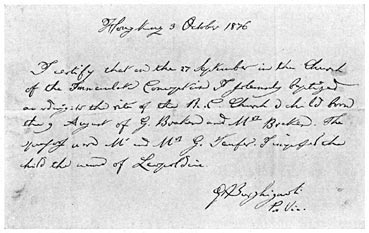 Hongkong 3 October 1876
I certify that on the 27 September in the Church
of the Immaculate Conception I solemnly baptized
according to the rite of the R. C. Church a child born
the 9 August of G. Bockerd and Mrs Bockerd. The
were Mr and Mrs G. I the
child the name of Leopoldina